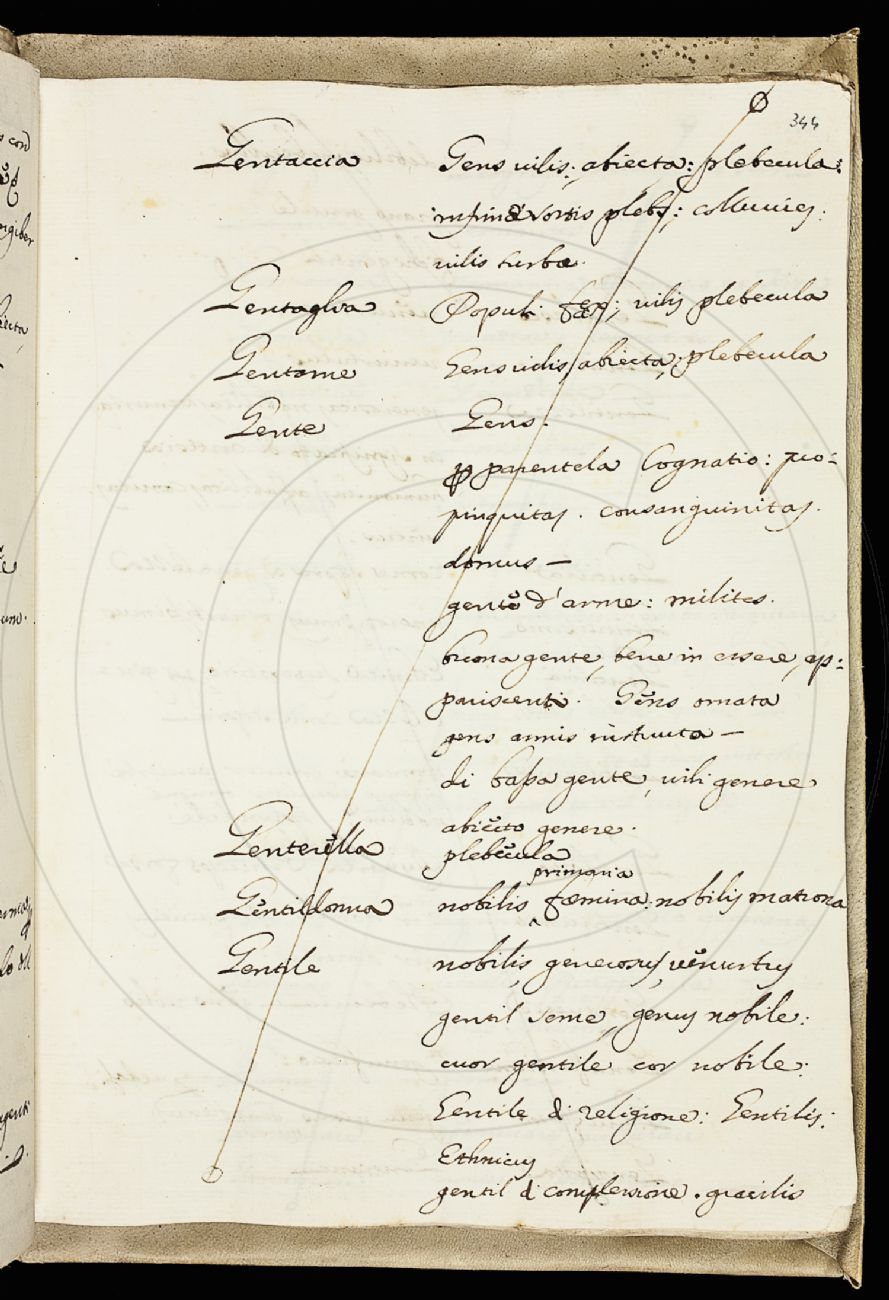 344
Gentaccia Gens vilis: abiecta: plebecula:
infimæ sortis plebs; colluuies:
vilis turba.
Gentaglia Populi fæx; vilis plebecula
Gentame Gens vilis, abiecta, plebecula
Gente Gens.
parentela Cognatio: pro=
pinquitas. consanguinitas.
domus —
gente d'arme: milites.
buona gente, bene in essere, ap=
pariscenti. Gens ornata
gens armis instructa —
di bassa gente, vili genere
abiecto genere.
Genterella plebecula
primaria
Gentildonna nobilis fœmina: nobilis matrona
Gentile nobilis, generosus, venustus
gentil seme, genus nobile:
cuor gentile cor nobile:
Gentile di religione: Gentilis:
Ethnicus
gentil di complessione. gracilis